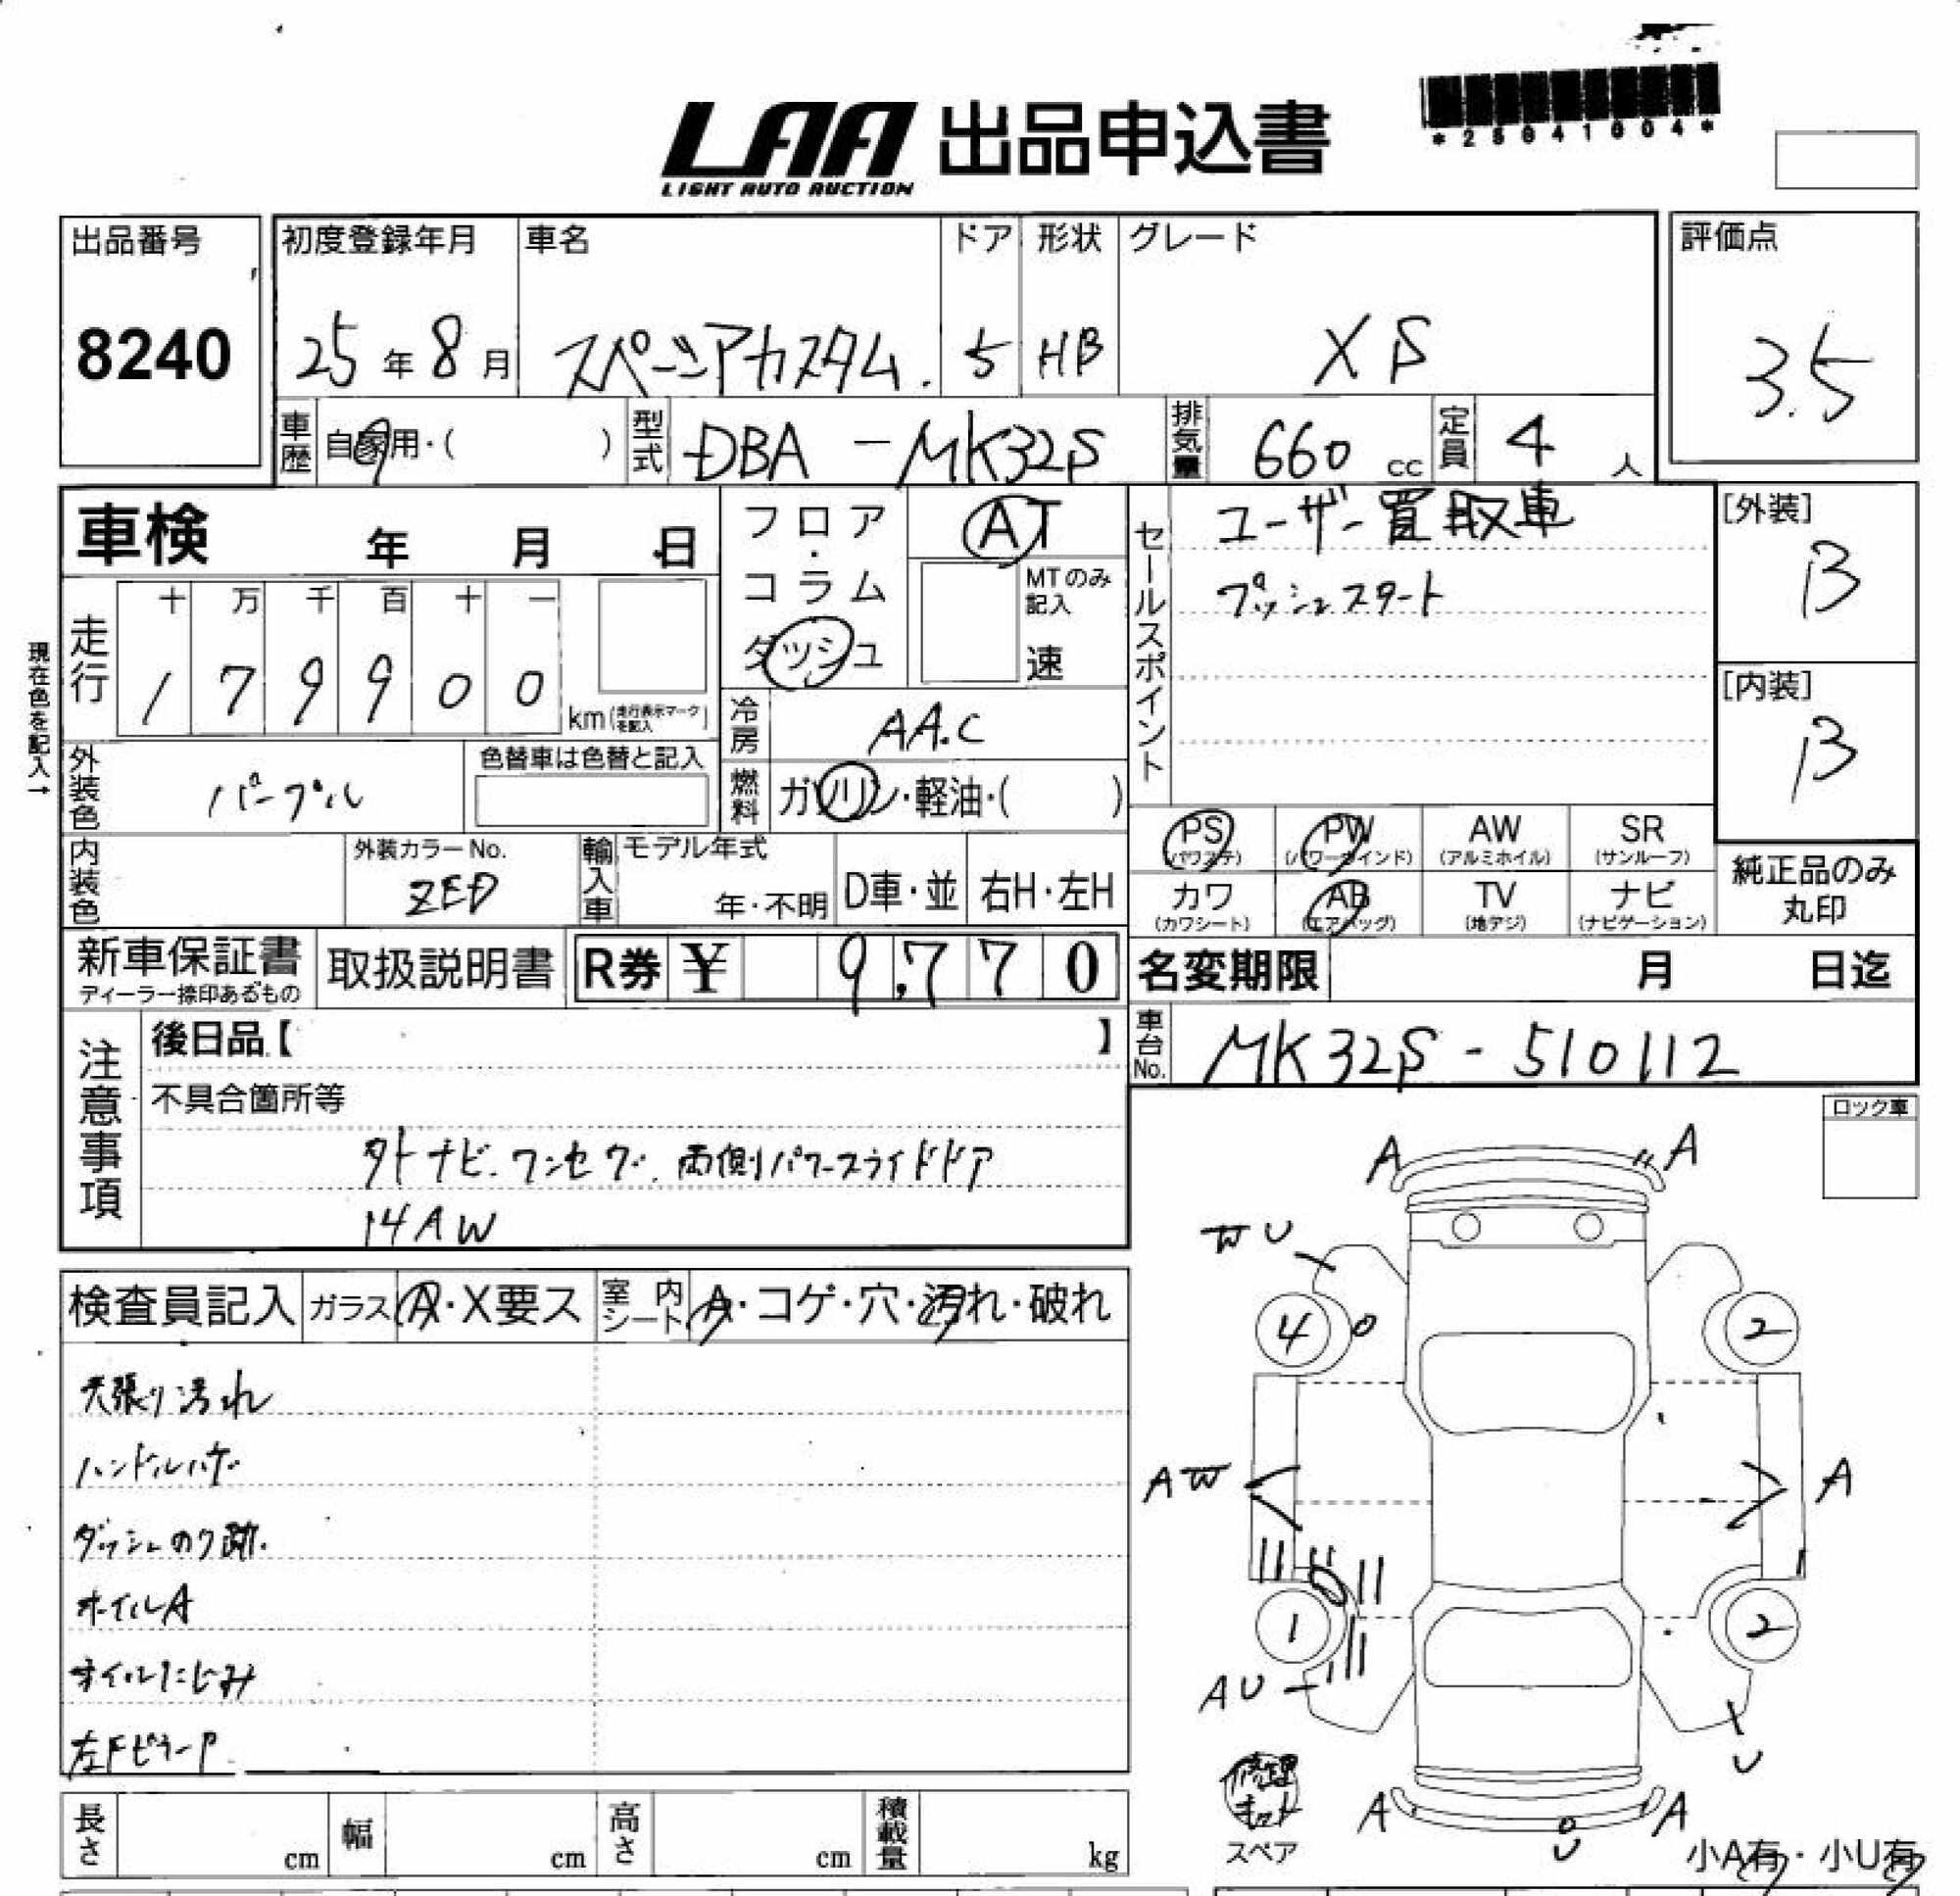 LAA 出品申込書
LIGHT AUTO AUCTION
*25041004*
出品番号
8240
初度登録年月
25年8月
車名
スペーシアカスタム.
ドア
5
形状
HB
グレード
XS
評価点
3.5
車歴
自家用・( )
型式
DBA-MK32S
排気量
660 cc
定員
4 人
車検 年 月 日
現在色を記入→
走行
十 万 千 百 十 一
1 7 9 9 0 0
km(走行表示マークを記入)
フロア・コラム
ダッシュ
AT
MTのみ記入
速
冷房
AA.C
燃料
ガソリン・軽油・( )
外装色
パープル
色替車は色替と記入
内装色
外装カラーNo.
ZED
輸入車
モデル年式
年・不明
D車・並
右H・左H
セールスポイント
ユーザー買取車
プッシュスタート
[外装]
B
[内装]
B
PS
(パワステ)
PW
(パワーウインド)
AW
(アルミホイル)
SR
(サンルーフ)
カワ
(カワシート)
AB
(エアバッグ)
TV
(地デジ)
ナビ
(ナビゲーション)
純正品のみ
丸印
新車保証書
ディーラー捺印あるもの
取扱説明書
R券 ¥ 9,770
名変期限 月 日迄
車台No.
MK32S-510112
注意事項
後日品【 】
不具合箇所等
外ナビ.ワンセグ.両側パワースライドドア
14AW
ロック車
検査員記入
ガラス
A・X要ス
室内シート
A・コゲ・穴・汚れ・破れ
天張り汚れ
ハンドルハゲ
ダッシュのり跡.
ホイルA
オイルにじみ
左FピラーP
A A
W U
4 2
A W
A
1 2
A U
U
修理キット
スペア
A A
U
小A有・小U有
長さ cm
幅 cm
高さ cm
積載量 kg